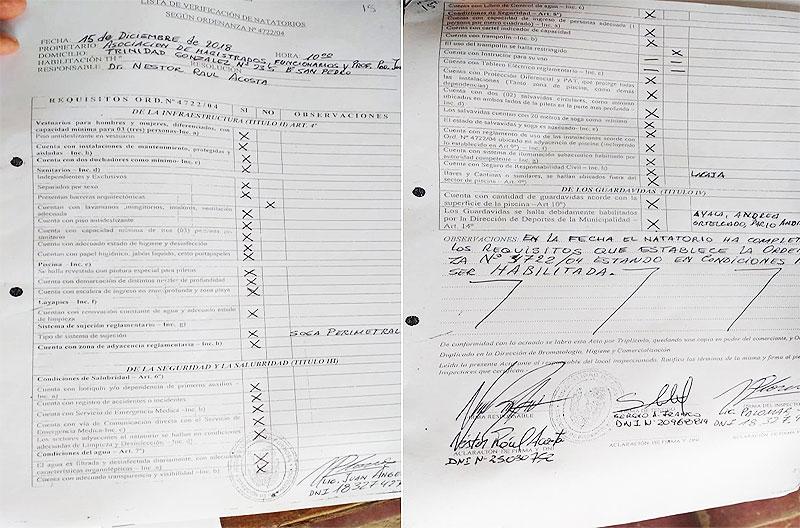 LISTA DE VERIFICACIÓN DE NATATORIOS
SEGÚN ORDENANZA Nº 4722/04
FECHA: 15 de DICIEMBRE de 2018 HORA: 10
PROPIETARIO: ASOCIACION DE MAGISTRADOS, FUNCIONARIOS Y PROF. POD.
DOMICILIO: TRINIDAD GONZALEZ Nº 735 Bº SAN PEDRO
HABILITACIÓN
RESPONSABLE: Dr. NESTOR RAUL ACOSTA
REQUISITOS ORD. Nº 4722/04 SI NO OBSERVACIONES
DE LA INFRAESTRUCTURA (TITULO II) ART. 4º
Vestuarios para hombres y mujeres, diferenciados, con
capacidad mínima para 03 (tres) personas-Inc. a)
Piso antideslizante en vestuario
Cuenta con instalaciones de mantenimiento, protegidas y
aisladas-Inc. b)
Cuenta con dos duchadores como mínimo-Inc. c)
Sanitarios – Inc. d)
Independientes y Exclusivos
Separados por sexo
Presentan barreras arquitectónicas
Cuentan con lavamanos, mingitorios, inodoros, ventilación
adecuada
Cuenta con piso antideslizante
Cuenta con capacidad mínima de tres (03) personas
Cuenta con adecuado estado de higiene y desinfección
Cuenta con papel higiénico, jabón líquido, cesto portapapeles
Piscina – Inc. e)
Se halla revestida con pintura especial para piletas
Cuenta con demarcación de distintos niveles de profundidad
Cuenta con escalera de ingreso en zona profunda y zona playa
Lavapies – Inc. f)
Cuentan con renovación constante de agua y adecuado estado
de limpieza
Sistema de sujeción reglamentario – Inc. g)
Tipo de sistema de sujeción SOGA PERIMETRAL
Cuenta con zona de adyacencia reglamentaria – Inc. h)
DE LA SEGURIDAD Y LA SALUBRIDAD (TITULO III)
Condiciones de Salubridad – Art. 6º)
Cuenta con botiquín y/o dependencia de primeros auxilios –
Inc. a)
Cuenta con registro de accidentes o incidentes
Cuenta con Servicio de Emergencia Médica –Inc. b)
Cuenta con vía de Comunicación directa con el Servicio de
Emergencia Médica-Inc. c)
Los sectores adyacentes al natatorio se hallan en condiciones
adecuadas de Limpieza y Desinfección –Inc. d)
Condiciones del agua – Art. 7º)
El agua es filtrada y desinfectada diariamente, con adecuadas
características organolépticas – Inc. a)
Cuenta con adecuado transparencia y visibilidad –Inc. b)
Lic. JUAN ANGEL
DNI 18327427
Cuenta con Libro de Control de agua – Inc. c)
Condiciones de Seguridad – Art. 8º)
Cuenta con capacidad de ingreso de personas adecuada (1
persona por metro cuadrado) –Inc. a)
Cuenta con cartel indicador de capacidad
Cuenta con trampolín –Inc. b)
El uso del trampolín se halla restringido
Cuenta con Instructor para su uso
Cuenta con Tablero Eléctrico reglamentario – Inc. c)
Cuenta con Protección Diferencial y PAT, que protege todas
las instalaciones (Tanto zona de piscina, como demás
dependencias)
Cuenta con dos (02) salvavidas circulares, como mínimo
ubicados en ambos lados de la pileta en la parte mas profunda –
Inc. d)
Los salvavidas cuentan con 20 metros de soga como mínimo
El estado de salvavidas y soga es adecuado –Inc. e)
Cuenta con reglamento de uso de las instalaciones acorde con
Ord. Nº 4722/04 ubicado en adyacencia de piscina (incluyendo
lo establecido en Art 9º) – Inc. f)
Cuenta con sistema de iluminación subacuático habilitado por
autoridad competente – Inc. g)
Cuenta con Seguro de Responsabilidad Civil – Inc. h)
Bares y Cantinas o similares, se hallan ubicados fuera del
sector de piscina – Art. 9º)
DE LOS GUARDAVIDAS (TITULO IV)
Cuenta con cantidad de guardavidas acorde con la
superficie de la piscina – Art 10º)
Los Guardavidas se halla debidamente habilitados AYALA, ANDREA
por In Dirección de Deportes de la Municipalidad –
Art. 14º
OBSERVACIONES: EN LA FECHA EL NATATORIO HA COMPLET
LOS REQUISITOS QUE ESTABLECE LA ORDE
ZA Nº 4722/04 ESTANDO EN CONDICIONES
SER HABILITADA.
De conformidad con lo actuado se labra este Acta por Triplicado, quedando una copia en poder del comerciante, y O
Duplicado en la Dirección de Bromatología, Higiene y Comercialización
Leída la presente Acta del local inspeccionado. Ratifica los términos de la misma y firma al pie
Inspectores que certifican
FIRMA RESPONSABLE
FIRMA DEL INSPECTO
SERGIO A. FRANCO
DNI Nº 20968819
Lic. PALOMAR
DNI 18.327.4
Nestor Raul Acosta
ACLARACIÓN DE FIRMA Y DNI
ACLARACIÓN DE FIRMA Y DNI